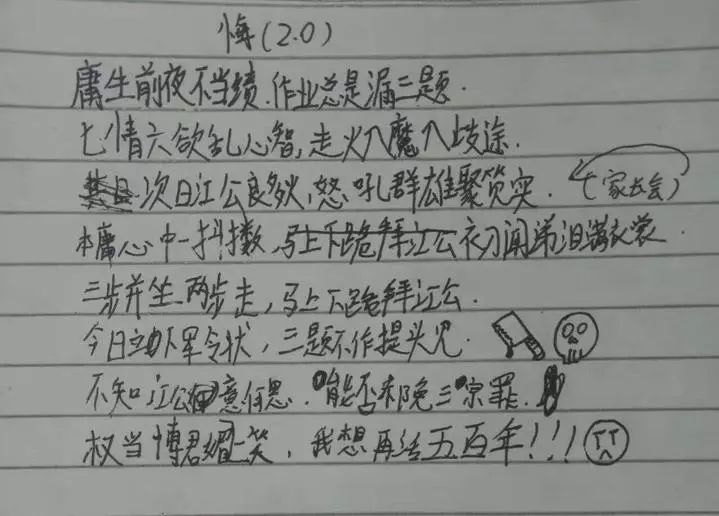 悔(2.0)
庸生前夜不当绩.作业总是漏三题.
七情六欲乱心智,走火入魔入歧途.
次日江公良多火,怒吼群雄聚贤实.(家长会)
本庸心中一抖擞,马上下跪拜江公初闻涕泪满衣裳
三步并坐两步走,马上下跪拜江公.
今日立下军令状,三题不作提头见.
不知江公意任思.能否和晚三宗罪.
权当博君一笑,我想再活五百年!!!